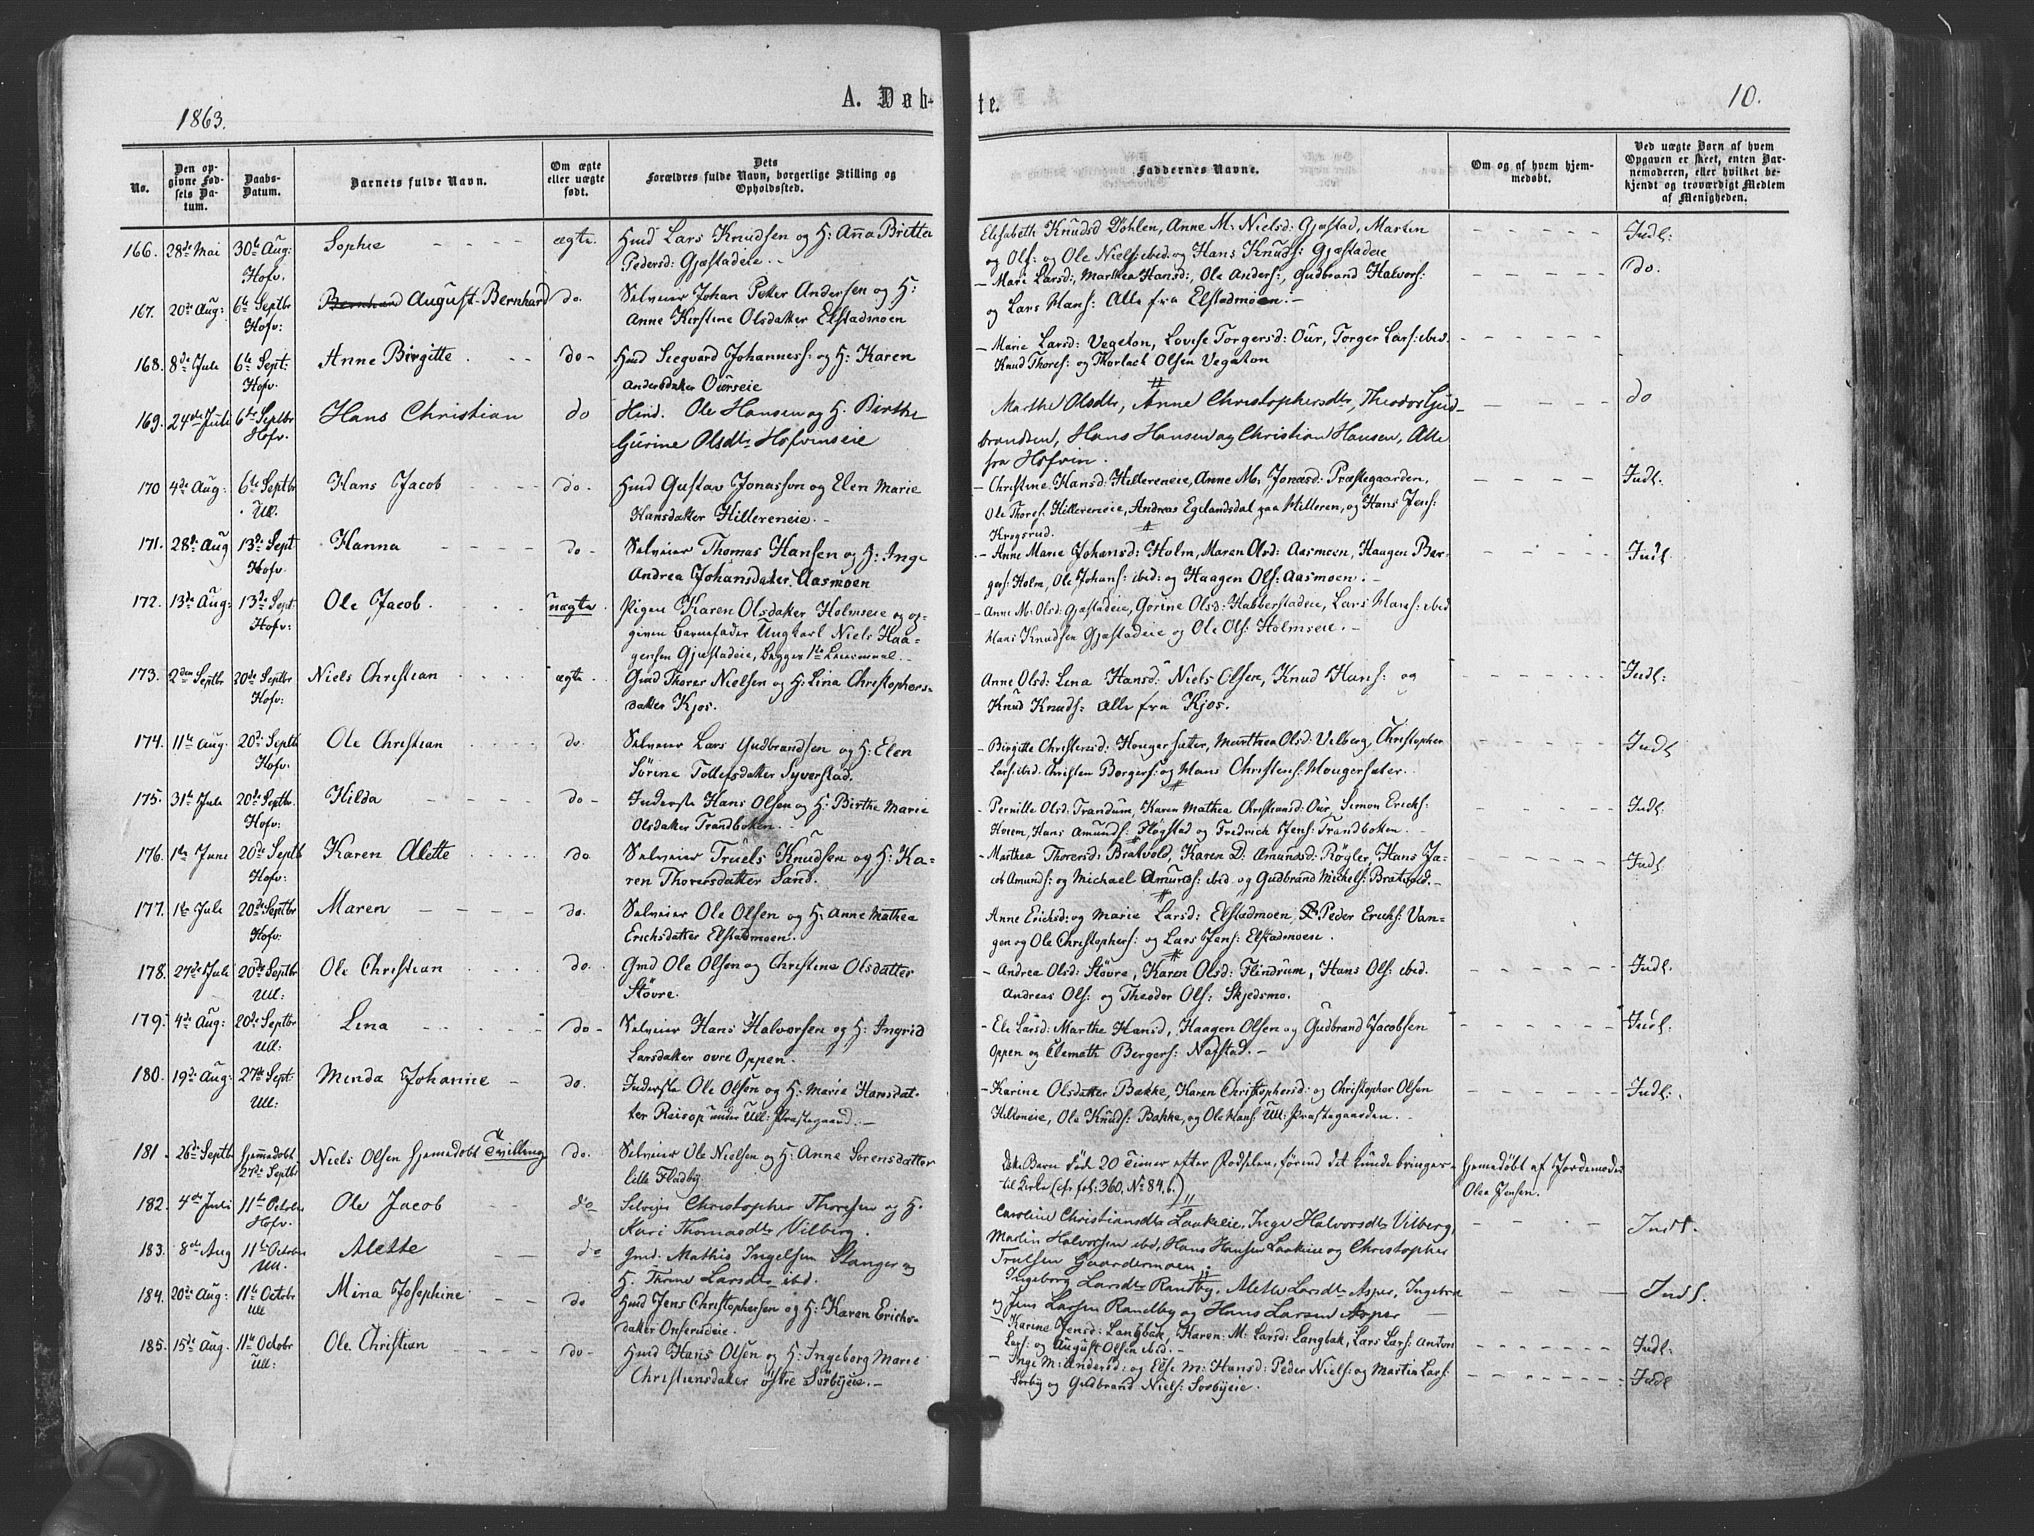 1863.
A. Døb-
te.
10.
No.
Den opgivne Fødsels Datum.
Daabs-Datum.
Barnets fulde Navn.
Om ægte eller uægte født.
Dets Forældres fulde Navn, borgerlige Stilling og Opholdssted.
Faddernes Navne.
Om og af hvem hjemmedøbt.
Ved uægte Børn af hvem Opgaven er skeet, enten Barnemoderen, eller hvilket bekjendt og troværdigt Medlem af Menigheden.
166. 28de Mai 30te Aug: Hofv. Sophie ægte. Hmd Lars Knudsen og H: Anna Britta
Pedersd: Gjæstadeie.
Elisabeth Knudsd Døhlen, Anne M: Nielsd: Gjæstad, Martin
og Ols: og Ole Niels: ibed. og Hans Knuds: Gjæstadeie
Indl:
167. 20de Aug: 6te Septbr Hofv: Bernhard August Bernhard do. Selveier Johan Petter Andersen og H:
Anne Kirstine Olsdatter Elstadmoen
- Mari Larsd: Marthea Hansd:, Ole Anders:, Gudbrand Halvors:
og Lars Hans: Alle fra Elstadmoen. -
do.
168. 8de Juli 6te Sept: Hofv: Anne Birgitte do - Hmd Seegvard Johanness: og H: Karen
Andersdatter Ourseie
- Marie Larsd: Vegeton, Lovise Torgersd: Our, Torger Lars: ibed.
Knud Thores: og Thorlack Olsen Vegaton
169. 24de Juli 6te Septbr Hofv. Hans Christian do Hmd. Ole Hansen og H. Birthe
Gurine Olsdtr Hofvinseie
Marthe Olsdtr, Anne Christophersdtr, Theodor Gud-
brandsen, Hans Hansen og Christian Hansen, Alle
fra Hofvin.
do
170 4de Aug: 6te Septbr Ull. Hans Jacob do. Hmd Gustav Jonasson og Elen Marie
Hansdatter Hillereneie. -
- Christine Hansd: Hillereneie, Anne M. Jonasd: Præstegaarden,
Ole Thores: Hillereneie, Andreas Egelandsdal paa Hilleren, og Hans Jens:
Krogsrud.
Indl.
171. 28de Aug 13de Sept Hofv. Hanna do - Selveier Thomas Hansen og H: Inge
Andrea Johansdatter, Aasmoen
- Anne Marie Johansd: Holm, Maren Olsd: Aasmoen, Haagen Bør-
gers: Holm, Ole Johans: ibed: og Haagen Ols: Aasmoen. -
Indl
172. 13de Aug: 13de Sept. Hofv: Ole Jacob. uægte. Pigen Karen Olsdatter Holmseie og op-
given Barnefader Ungkarl Niels Haa-
gensen Gjæstadeie, Begges 1te Leiermaal. -
- Anne M. Olsd: Gjæstadeie, Gorine Olsd: Habberstadeie, Lars Hans: ibed
Hans Knudsen Gjæstadeie og Ole Ols: Holmseie. -
173. 2den Septbr 20de Septbr Hofv: Niels Christian ægte. Gmd Thorer Nielsen og H: Lina Christophers-
datter Kjos.
Anne Olsd: Lina Hansd: Niels Olsen, Knud Hans: og
Knud Knuds: alle fra Kjos.
Indl:
174. 11te Aug. 20de Septb Hofv. Ole Christian do. Selveier Lars Gudbrandsen og H: Elen
Sørine Tollefsdatter Syverstad.
Birgitte Christensd: Hougersæter, Marthea Olsd: Velberg, Christopher
Lars: ibed. Christen Borgers: og Hans Christens: Hougersæter.
Indl
175. 31te Juli 20de Septbr. Hofv: Hilda do - Inderste Hans Olsen og H: Birthe Marie
Olsdatter Trandboken.
Pernille Olsd: Trandum, Karen Mathea Christiansd: Our, Simon Ericks:
Hvem, Hans Amunds: Fløgstad og Fredrich Jens: Trandboken.
Indl:
176. 1te Juni 20de Septb Hofv: Karen Alette do. Selveier Truels Knudsen og H: Ka-
ren Thorersdatter Sand.
- Marthea Thorersd: Bratvold, Karen D: Amundsd: Røgler, Hans Ja-
cob Amunds: og Michael Amunds: ibed og Gudbrand Mickels: Bratvold. -
Indl:
177. 1te Juli 20de Septbr Hofv: Maren do. Selveier Ole Olsen og H: Anne Mathea
Ericksdatter Elstadmoen.
Anne Ericksd: og Marie Larsd: Elstadmoen, Peder Ericks: Van-
gen og Ole Christophers: og Lars Jens: Elstadmoen.
178. 27de Juli 20de Septbr Ull: Ole Christian do. Gmd Ole Olsen og Christine Olsdatter
Støvre.
- Andrea Olsd: Støvre, Karen Olsd: Flindrum, Hans Ols: ibed.
Andreas Ols: og Theodor Ols: Skjedsmo.
Indl.
179. 4de Aug: 20de Septbr Ull: Lina do - Selveier Hans Halvorsen og H: Ingrid
Larsdatter ovre Oppen.
- Eli Larsd: Marthe Hansd, Haagen Olsen og Gudbrand Jacobsen
Oppen og Clemath Bergers: Nafstad. -
Indl:
180. 19de Aug: 27de Sept: Ull: Minda Johanne - do. Inderste Ole Olsen og H: Maria Hansdat-
ter Raisop under Ull: Præstegaard. -
- Karine Olsdatter Bakke, Karen Christophersd: og Christopher Olsen
Ole Knuds: Bakke, og Ole Hans: Ull: Præstegaarden.
Indl:
181. 26de Septb Hjemmedøbt 27de Septb Niels Olsen hjemmedøbt Tvilling do. Selveier Ole Nielsen og H: Anne Sørensdatter
lille Fladby
Barn døde 20 Timer efter Fødselen, førend det kunde bringes
til Kirke (cfr. fol: 360, No 84, b.)
hjemmedøbt af Jordemoder
Olea Jensen.
182. 4de Juli 11te Octobr Hofv. Ole Jacob do Selveier Christopher Thoresen og H.
Kari Thomasdtr Vilberg.
Caroline Christiansdtr Laakeeie, Inge Halvorsdtr Vilberg,
Martin Halvorsen ibed, Hans Hansen Laakeeie og Christopher
Trulsen Gaardermoen.
Indl.
183. 8de Aug 11te Octobr Ull. Alette do Gmd. Mathis Ingelsen Stanger og
H. Thrine Larsdtr ibd.
Ingeborg Larsdtr Randby, Alette Larsdtr Asper, Ingebr
og Jens Larsen Randby og Hans Larsen Asper
Indl.
184. 20de Aug: 11te Octobr Ull Mina Josephine do Hmd Jens Christophersen og H: Karen Ericks-
datter Onsrudeie.
- Karine Jensd: Langbak, Karen M. Larsd: Langbak, Lars Lars: Anton
Lars: og August Olsen ibed. -
Indl:
185. 15de Aug. 11te Octobr Ull: Ole Christian do - Hmd Hans Olsen og H: Ingeborg Marie
Christiansdatter østre Sørbyeie. -
- Inge M: Andersd: og Else M: Hansd: Peder Niels: og Martin Lars:
Sørby og Gudbrand Niels: Sørbyeie. -
Indl